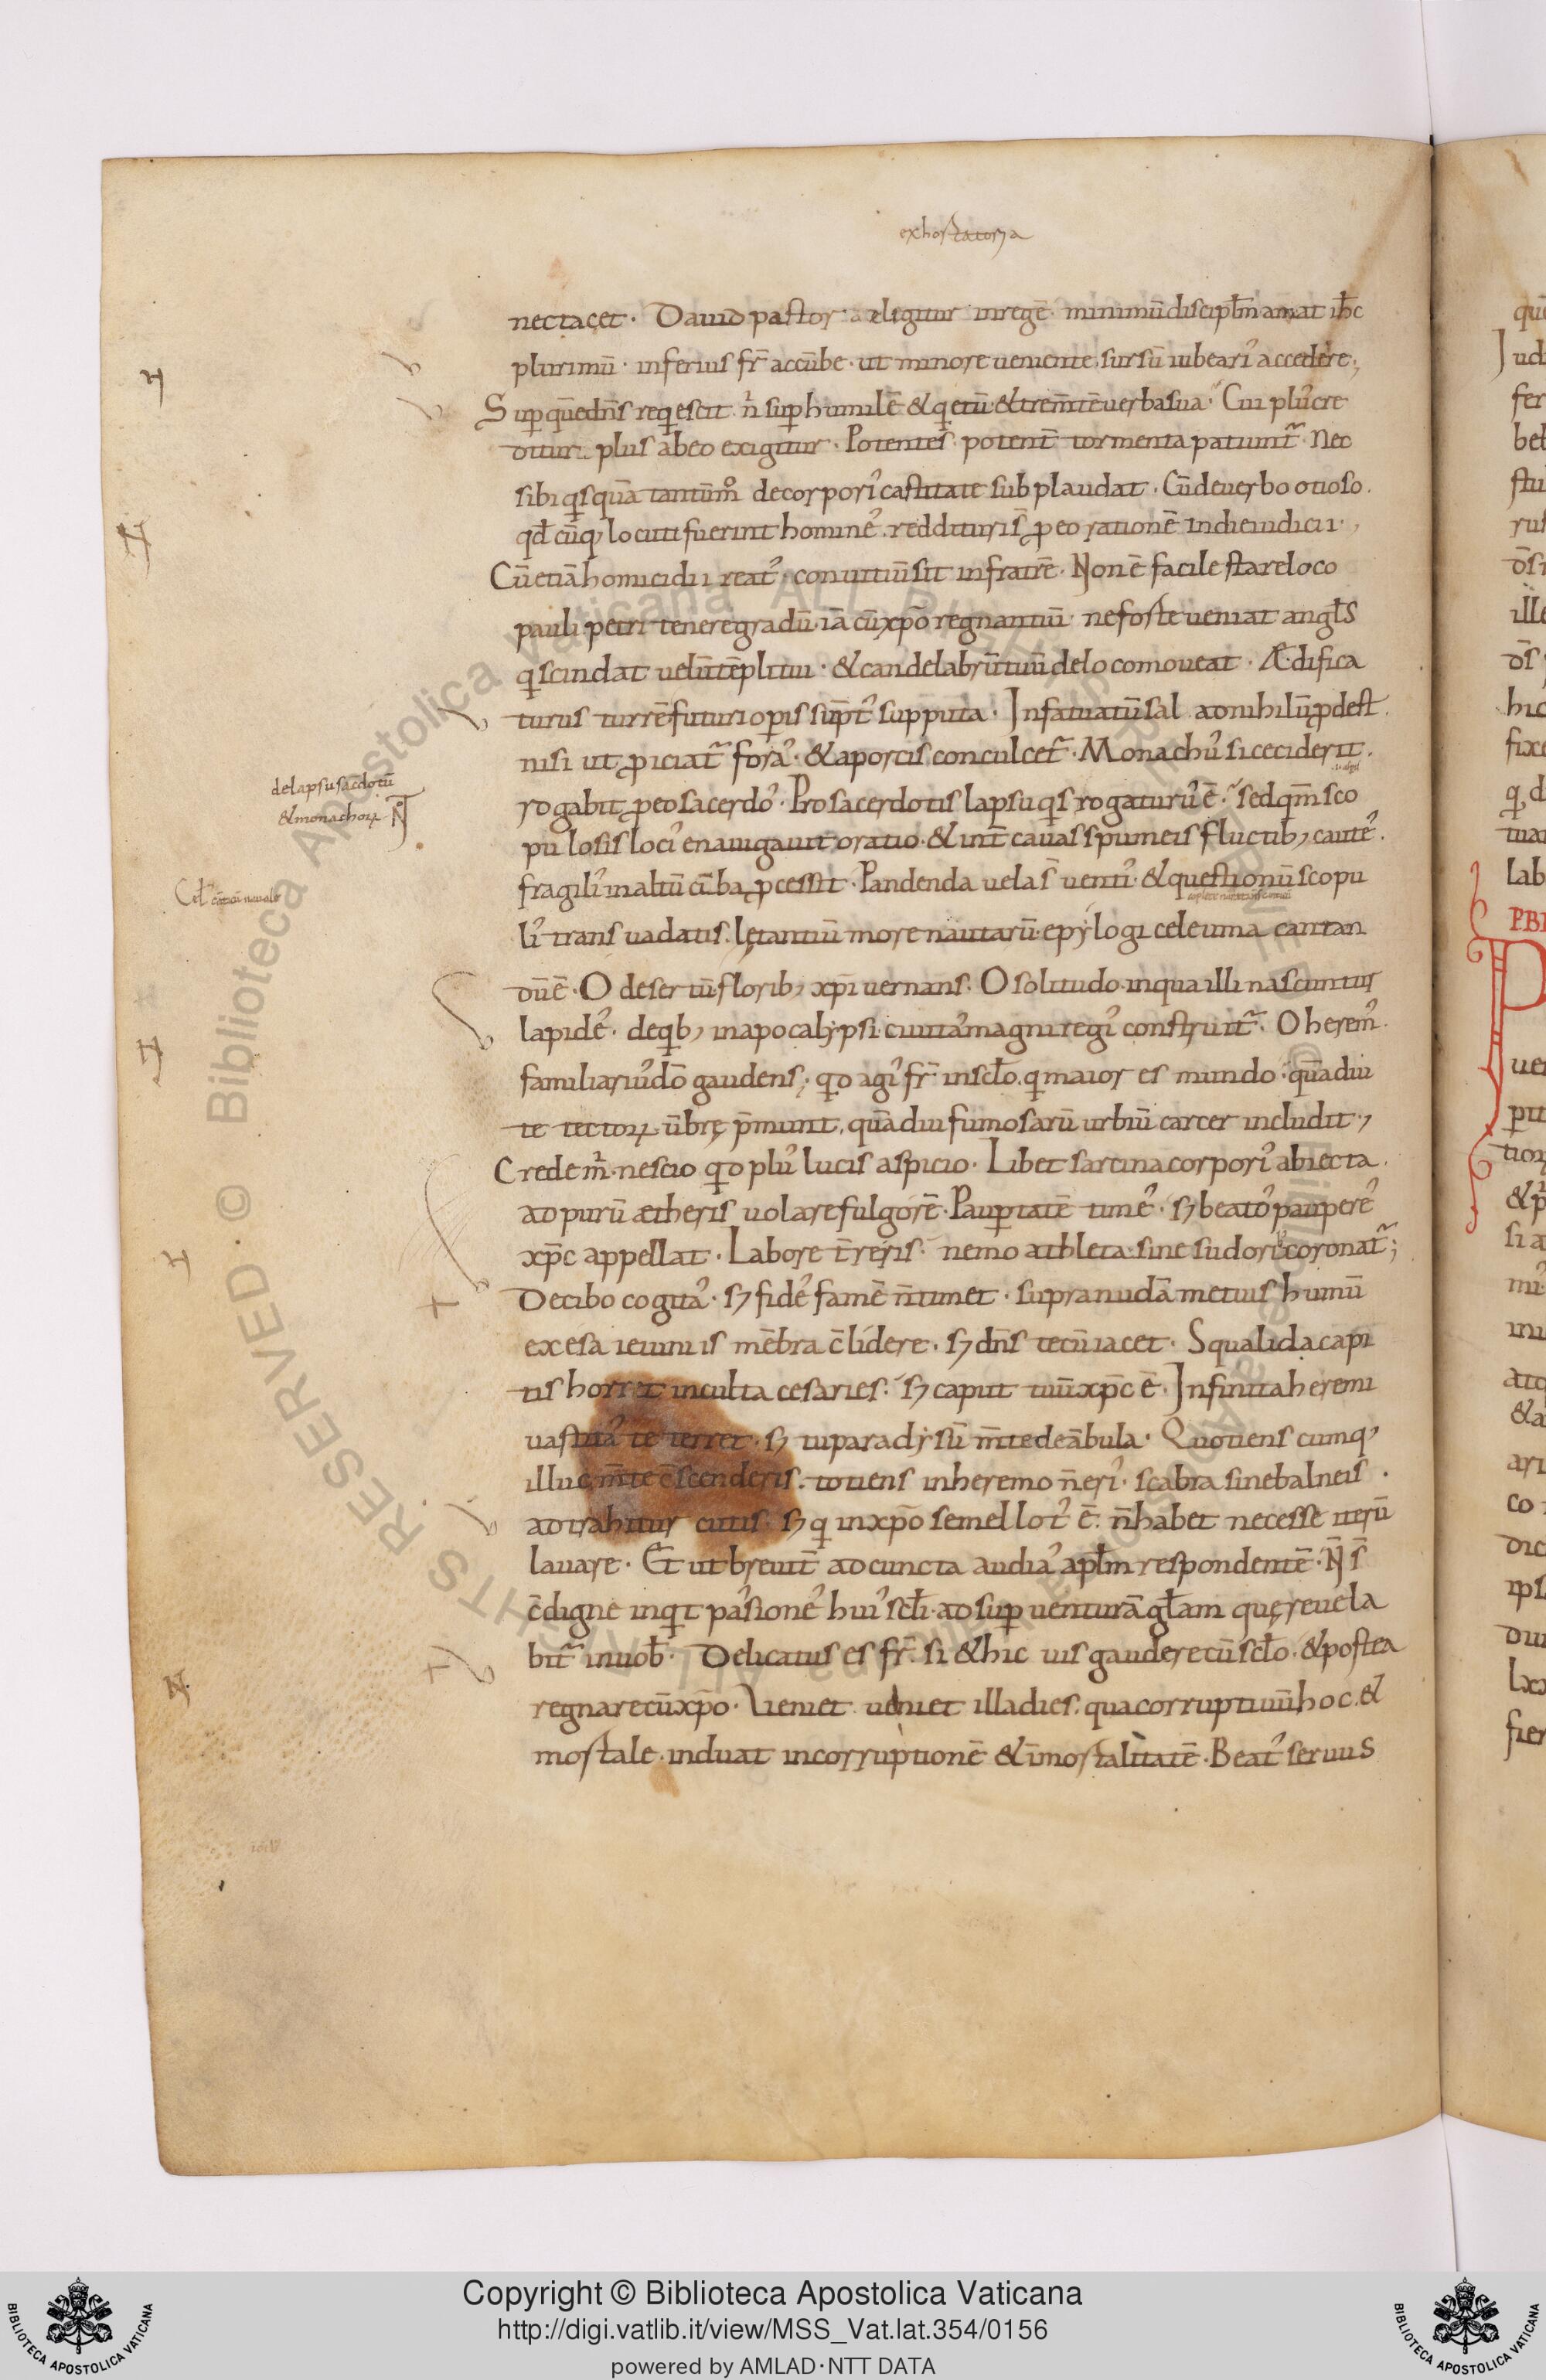 exhortatoria
nec tacet. Dauid pastor eligitur in regē. minimū discipłm amat ih̄c
plurimū. inferius fr̄ accūbe. ut minore ueniente sursū iubearis accedere;
Sup quē dn̄s reqescit. n̄ sup humilē & qetū & trem̄tē uerba sua. Cui plus cre
ditur. plus ab eo exigitur. Potentes potent̄ tormenta patiunt̄. Nec
sibi qsquā tantūm̊ de corporis castitate subplaudat. Cū de uerbo otioso
qd̄cūq; locuti fuerint homines. reddituri s̄ p eo rationē in die iudicii.
Cū etiā homicidii reatus. conuitiū sit in fratrē. Non ē facile stare loco
pauli. petri tenere gradū. iā cū xp̄o regnantiū. ne forte ueniat angłs
q scindat uelū tēpli tui. & candelabrū tuū de loco moueat. Ædifica
turus turrē futuri opis sūpt' supputa. Infatuatū sal ad nihilū pdest
nisi ut piciat̄ foras. & a porcis conculcet̄. Monachus si ceciderit.
rogabit p eo sacerdos. Pro sacerdotis lapsu qs rogaturus ē. sed qm̄ sco
delapsu sac̄dotū
& monachoꝝ
pulosis locis enauigauit oratio. & int̄ cauas spumeis fluctib; cautes.
fragilis in altū cūba pcessit. Pandenda uela s̄ uentis. & questionū scopu
lis transuadatis. lętantiū more nautarū. epylogi celeuma cantan
dū ē. O desertū florib; xp̄i uernans. O solitudo. in qua illi nascuntur
lapides. de qb; in apocalypsi. ciuitas magni regis construit̄. O heremus
familiarius dō gaudens. qd agis fr̄ in scło. q maior es mundo. quādiu
te tectoꝝ ūbrę p̄munt. quādiu fumosarū urbiū carcer includit.
Crede m̄. nescio qd plus lucis aspicio. Libet sarcina corporis abiecta.
ad purū ætheris uolare fulgorē. Paupertatē times. s; beatos pauperes
xp̄c appellat. Labore t̄reris. nemo athleta sine sudore coronat̄;
De cibo cogitas. s; fides famē n̄ timet. supra nudā metuis humū
exesa ieiuniis mēbra c̄lidere. s; dn̄s tecū iacet. Squalida capi
tis horret inculta cesaries. s; caput tuū xp̄c ē. Infinita heremi
uastitas te terret. s; tu paradysū m̄te deābula. Quotiens cumq;
illuc m̄te c̄scenderis. totiens in heremo n̄ eris. scabra sine balneis.
adtrahitur cutis. s; q in xp̄o semel lotus ē. n̄ habet necesse iterū
lauare. Et ut breuit̄ ad cuncta audias. apłm respondentē. N̄ s̄
c̄digne inqt passiones huius scłi. ad sup uenturā głam quę reuela
bit̄ in uob̄. Delicatus es fr̄. si & hic uis gaudere cū scło. & postea
regnare cū xp̄o. Veniet ueniet illa dies. qua corruptiuū hoc. &
mortale. induat incorruptionē & īmortalitatē. Beatus seruus
Copyright © Biblioteca Apostolica Vaticana
http://digi.vatlib.it/view/MSS_Vat.lat.354/0156
powered by AMLAD·NTT DATA
BIBLIOTECA APOSTOLICA VATICANA
BIBLIOTECA APOSTOLICA VATICANA